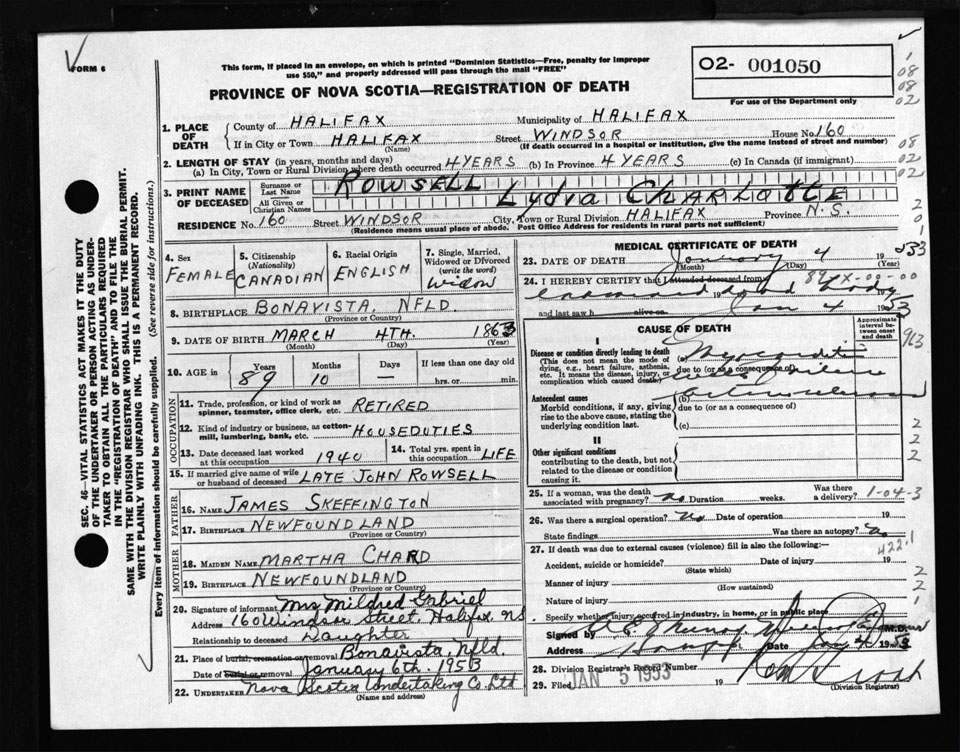 FORM 6
This form, if placed in an envelope, on which is printed "Dominion Statistics—Free, penalty for improper
use $50," and properly addressed will pass through the mail "FREE"
PROVINCE OF NOVA SCOTIA—REGISTRATION OF DEATH
O2- 001050
For use of the Department only
1. PLACE OF DEATH
County of HALIFAX Municipality of HALIFAX
If in City or Town HALIFAX Street WINDSOR House No. 160
(Name) (If death occurred in a hospital or institution, give the name instead of street and number)
2. LENGTH OF STAY (in years, months and days)
(a) In City, Town or Rural Division where death occurred 4 YEARS (b) In Province 4 YEARS (c) In Canada (if immigrant)
3. PRINT NAME OF DECEASED
Surname or Last Name ROWSELL
All Given or Christian Names Lydia CHARLOTTE
RESIDENCE No. 160 Street WINDSOR City, Town or Rural Division HALIFAX Province N.S.
(Residence means usual place of abode. Post Office Address for residents in rural parts not sufficient)
4. Sex FEMALE
5. Citizenship (Nationality) CANADIAN
6. Racial Origin ENGLISH
7. Single, Married, Widowed or Divorced (write the word) Widow
8. BIRTHPLACE BONAVISTA, NFLD.
(Province or Country)
9. DATE OF BIRTH MARCH 4TH. 1863
(Month) (Day) (Year)
10. AGE in Years 89 Months 10 Days — If less than one day old
hrs. or min.
OCCUPATION
11. Trade, profession, or kind of work as
spinner, teamster, office clerk, etc. RETIRED
12. Kind of industry or business, as cotton-
mill, lumbering, bank, etc. HOUSEDUTIES
13. Date deceased last worked
at this occupation 1940
14. Total yrs. spent in
this occupation LIFE
15. If married give name of wife
or husband of deceased LATE JOHN ROWSELL
FATHER
16. NAME JAMES SKEFFINGTON
17. BIRTHPLACE NEWFOUNDLAND
(Province or Country)
MOTHER
18. MAIDEN NAME MARTHA CHARD
19. BIRTHPLACE NEWFOUNDLAND
(Province or Country)
20. Signature of informant Mrs Mildred Gabriel
Address 160 Windsor Street, Halifax NS
Relationship to deceased Daughter
21. Place of burial, cremation or removal Bonavista, Nfld.
Date of burial or removal January 6th. 1953
22. UNDERTAKER Nova Scotia Undertaking Co. Ltd
(Name and address)
MEDICAL CERTIFICATE OF DEATH
23. DATE OF DEATH January 4 1953
(Month) (Day) (Year)
24. I HEREBY CERTIFY that I attended deceased from
19 Jan 4 1953
and last saw h alive on
CAUSE OF DEATH
Approximate interval between onset and death
I
Disease or condition directly leading to death
(This does not mean the mode of
dying, e.g., heart failure, asthenia,
etc. It means the disease, injury, or
complication which caused death)
(a)
due to (or as a consequence of)
Antecedent causes
Morbid conditions, if any, giving
rise to the above cause, stating the
underlying condition last.
(b)
due to (or as a consequence of)
(c)
II
Other significant conditions
contributing to the death, but not
related to the disease or condition
causing it.
25. If a woman, was the death
associated with pregnancy? no Duration weeks. Was there
a delivery? 1-04-3
26. Was there a surgical operation? no Date of operation 19
State findings Was there an autopsy? no
422.1
27. If death was due to external causes (violence) fill in also the following:—
Accident, suicide or homicide? Date of injury 19
(State which)
Manner of injury
(How sustained)
Nature of injury
Specify whether injury occurred in industry, in home, or in public place
Signed by M.D.
Address Date Jan 4 1953
28. Division Registrar's Record Number
29. Filed JAN 5 1953 19
(Division Registrar)
SEC. 46—VITAL STATISTICS ACT MAKES IT THE DUTY
OF THE UNDERTAKER OR PERSON ACTING AS UNDER-
TAKER TO OBTAIN ALL THE PARTICULARS REQUIRED
IN THE "REGISTRATION OF DEATH" AND TO FILE THE
SAME WITH THE DIVISION REGISTRAR WHO SHALL ISSUE THE BURIAL PERMIT.
WRITE PLAINLY WITH UNFADING INK. THIS IS A PERMANENT RECORD.
Every item of information should be carefully supplied. (See reverse side for instructions.)